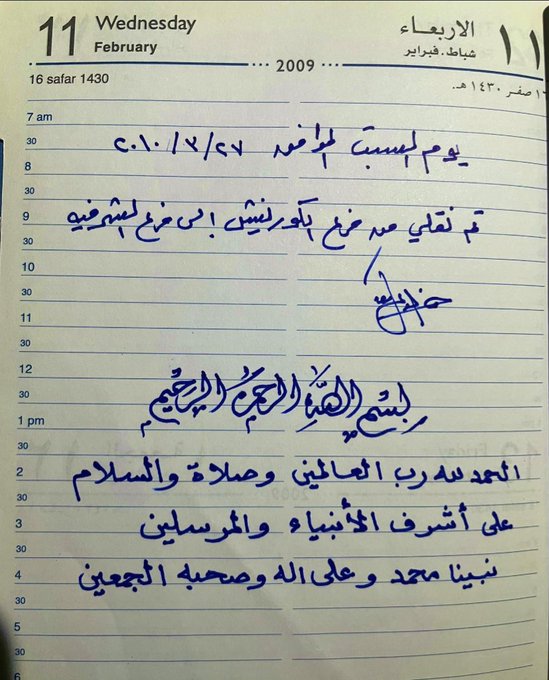 11 Wednesday February
الاربعاء ١١
شباط - فبراير
2009
16 safar 1430
١٦ صفر ١٤٣٠ هـ
7 am
يوم السبت الموافق ٢٠١٠/٣/٢٧
30
8
30
9
تم نقلي من فرع الكورنيش إلى فرع الشرفيه
30
10
30
11
30
12
30
بسم الله الرحمن الرحيم
1 pm
30
2
الحمد لله رب العالمين وصلاة والسلام
30
3
على أشرف الأنبياء والمرسلين
30
4
نبينا محمد وعلى اله وصحبه الجمعين
30
5
30
6